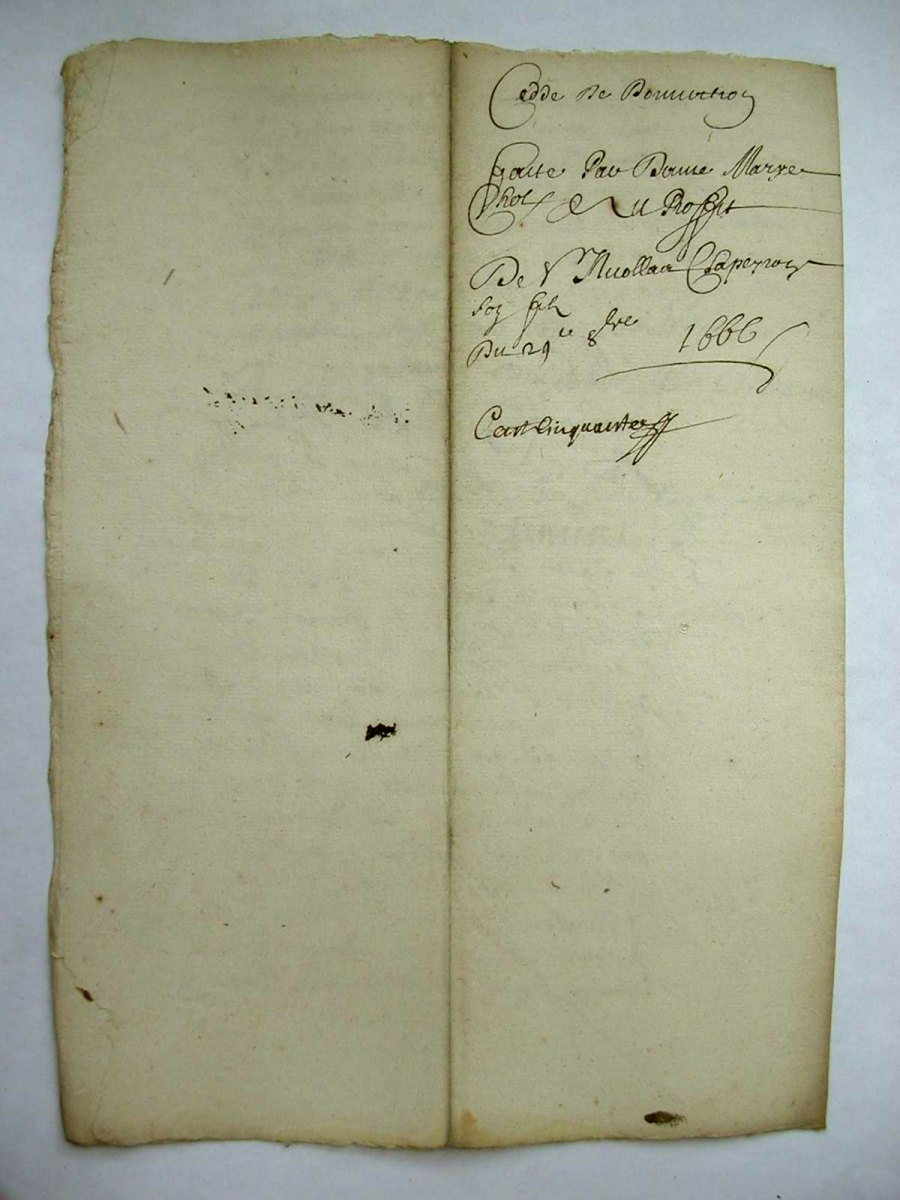 Cedde de Donnation
Faite Par Dame Marye
Chol & Au Proffit
De Sr Nicollas Chaperon
son fils
Du 29e 8bre 1666
Cart Cinquante